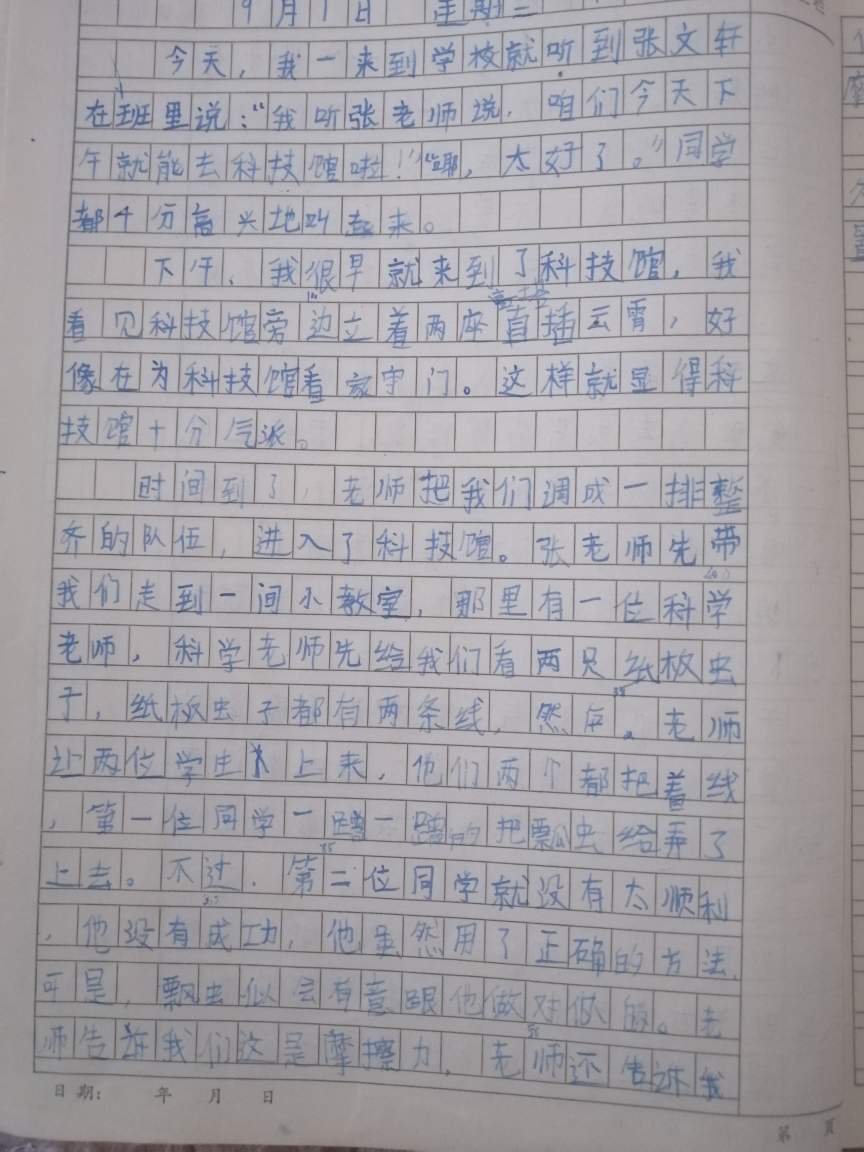 9月1日 星期二
今天，我一来到学校就听到张文轩
在班里说：“我听张老师说，咱们今天下
午就能去科技馆啦！”“耶，太好了。”同学
都十分高兴地叫起来。
下午，我很早就来到了科技馆，我
高塔
看见科技馆旁边立着两座直插云霄，好
像在为科技馆看家守门。这样就显得科
技馆十分气派。
时间到了，老师把我们调成一排整
齐的队伍，进入了科技馆。张老师先带
我们走到一间小教室，那里有一位科学
老师，科学老师先给我们看两只纸板虫
子，纸板虫子都有两条线，然后。老师
让两位学生上来，他们两个都把着线
，第一位同学一蹭一蹭的把瓢虫给弄了
上去。不过，第二位同学就没有太顺利
，他没有成功，他虽然用了正确的方法，
可是，瓢虫似会有意跟他做对似的。老
师告诉我们这是摩擦力，老师还告诉我
日期： 年 月 日
第 页